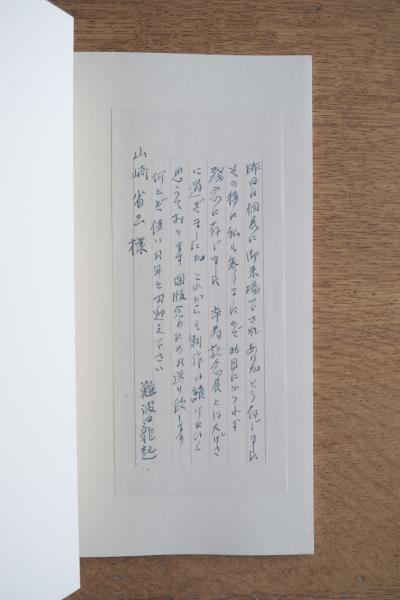 昨日は個展に御来場下されありがとう存じました
その後に私も参りましたがお目にかかれず
残念に存じました 卒寿記念展とは大げさ
に過ぎましたが これからも制作は続けたいと
思うております 図版念のためお送り致します
何とぞ佳いお年をお迎え下さい
難波田龍起
山崎省三様